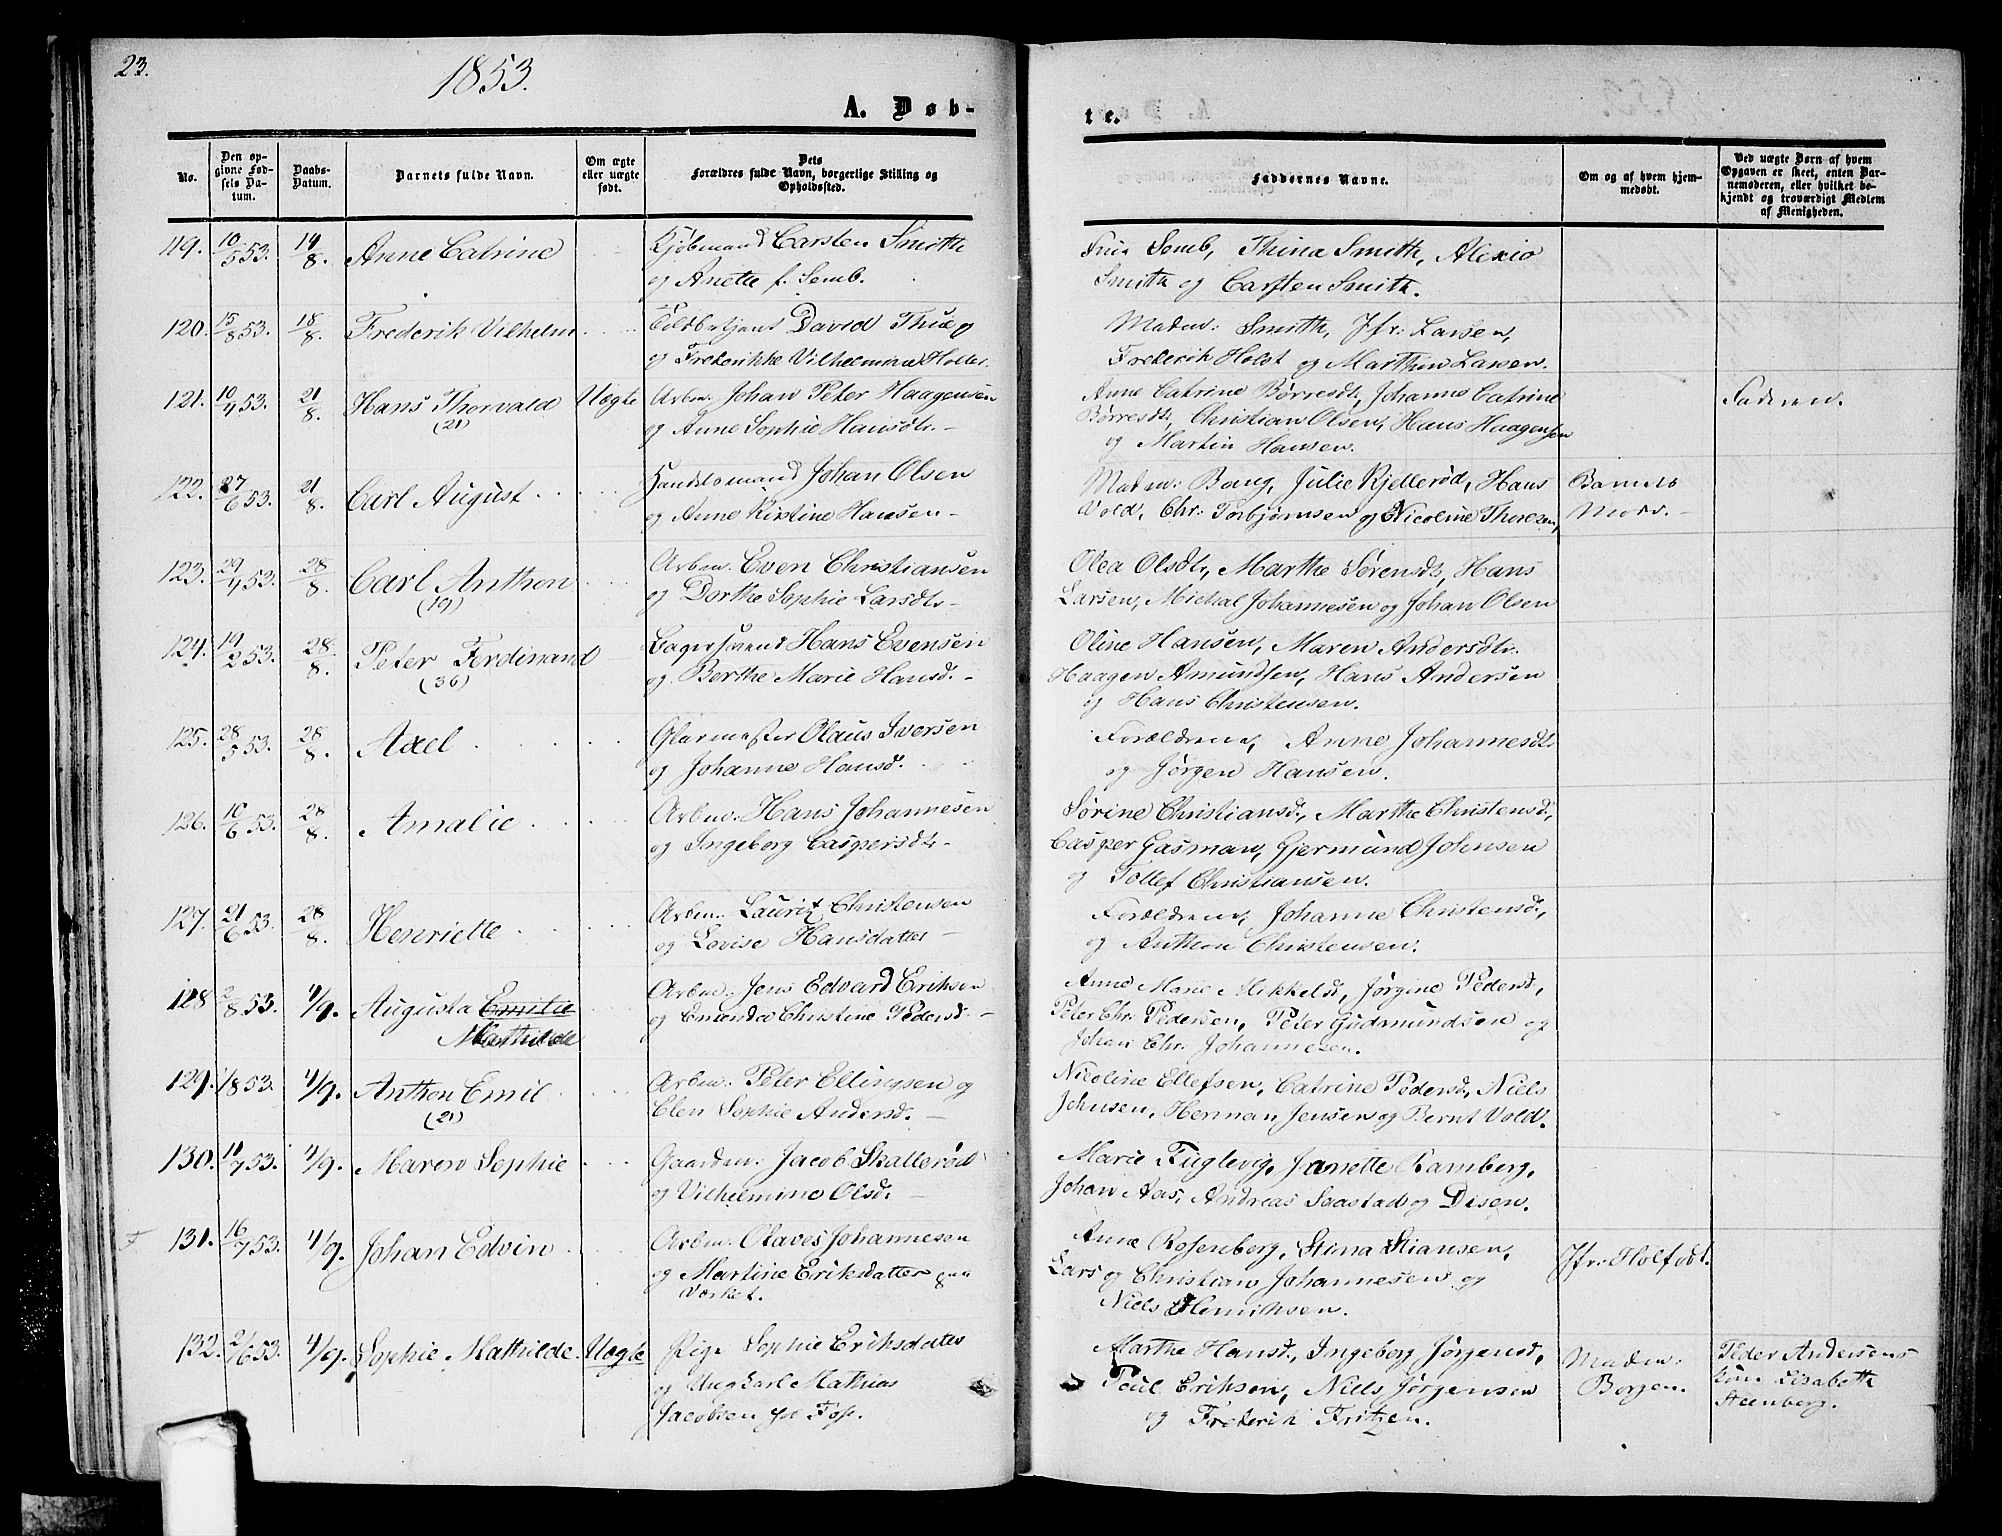 23.
1853.
A. Døb-
te.
No.
Den op-
givne Fød-
sels Da-
tum.
Daabs-
Datum.
Barnets fulde Navn.
Om ægte
eller uægte
født.
Dets
Forældres fulde Navn, borgerlige Stilling og
Opholdssted.
Faddernes Navne.
Om og af hvem hjem-
medøbt.
Ved uægte Børn af hvem
Opgaven er skeet, enten Bar-
nemoderen, eller hvilket be-
kjendt og troværdigt Medlem
af Menigheden.
119. 10/5 53. 14/8. Anne Catrine
Kjøbmand Carsten Smith
og Anette f. Semb.
Semb, Thina Smith,
Smith og Carsten Smith.
120. 15/8 53. 18/8. Frederik Vilhelm
Toldbetjent David
og Frederikke Vilhelmine Holter.
Madm: Smith, Jfr: Larsen,
Frederik Holst og Marthin Larsen.
121. 10/4 53. 21/8. Hans Thorvald Uægte
(21)
Arbm. Johan Peter Haagensen
og Anne Sophie Hansdtr. -
Anne Catrine Børresdt, Johanne Catrine
Børresdt, Christian Olsen, Hans Haagensen
og Martin Hansen.
Faderen.
122. 27/6 53. 21/8. Carl August
Handelsmand Johan Olsen
og Anne Kirstine Hansen -
Madm: Bang, Julie Kjellerød, Hans
Vold, Chr. Torbjørnsen og Nicoline Thoresen,
Barnets
Moder. -
123. 29/4 53. 28/8. Carl Anthon
(19)
Arbm. Even Christiansen
og Dorthe Sophie Larsdtr -
Olea Olsdtr, Marthe Sørensdt, Hans
Larsen, Michal Johannesen og Johan Olsen
124. 19/2 53. 28/8. Peter Ferdinand
(36)
Bagersvend Hans Evensen
og Berthe Marie Hansd. -
Oline Hansen, Maren Andersdtr.
Haagen Amundsen, Hans Andersen
og Hans Christensen.
125. 28/5 53. 28/8. Axel
Glarmester Olaus Iversen
og Johanne Hansd.
Forældrene, Anne Johannesdt
og Jørgen Hansen.
126. 10/6 53. 28/8. Amalie
Arbm. Hans Johannesen
og Ingeborg Caspersdtr -
Sørine Christiansd., Marthe Christensd,
Casper Gasman, Gjermund Johnsen
og Tollef Christiansen.
127. 21/6 53. 28/8. Henriette
Arbm. Lauritz Christensen
og Lovise Hansdatter -
Forældrene, Johanne Christensd,
og Anthon Christensen.
128 2/8 53. 4/9. Augusta Emilie
Mathilde
Arbm: Jens Edvard Eriksen
og Christine Pedersd. -
Anne Marie Mikkelsdt, Jørgine Pedersd,
Peter Chr. Pedersen, Peter Gudmundsen og
Johan Chr. Johannesen.
129. 1/8 53. 4/9. Anthon Emil
(21)
Arbm. Peter Ellingsen og
Elen Sophie Andersd. -
Nicoline Ellefsen, Catrine Pedersd, Niels
Johnsen, Herman Jensen og Bernt Vold.
130. 11/7 53. 4/9. Maren Sophie
Gaardm. Jacob Skallerød
og Vilhelmine Olsd. -
Marie Fuglevig, Janette Ramberg,
Johan Aas, Andreas Saastad og Disen.
131. 16/7 53. 4/9. Johan Edvin
Arbm. Olaves Johannesen
og Martine Eriksdatter paa
Værket.
Anne Rosenberg, Stina Stiansen,
Lars og Christian Johannesen og
Niels Henriksen.
Jfr: Holfodt.
132. 2/6 53. 4/9. Sophie Mathilde. Uægte
Pige Sophie Eriksdatter
og Ungkarl Mathias
Jacobsen
Marthe Hansd., Ingeborg Jørgensd,
Poul Eriksen, Niels Jørgensen
og Frederik Fritzen.
Madm:
Borgen.
Peder Andersens
kone Lisabeth
Steenberg.